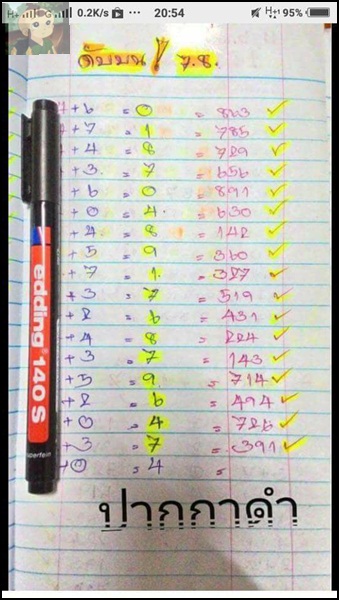 H+ G 0.2K/s ... 20:54 H+ 95%
ดับบน / 7.8.
4+6 = 0 = 863 ✓
+7 = 1 = 785 ✓
+4 = 8 = 729 ✓
+3 = 7 = 656 ✓
+6 = 0 = 891 ✓
+0 = 4 = 630 ✓
+4 = 8 = 142 ✓
+5 = 9 = 360 ✓
+7 = 1 = 327 ✓
+3 = 7 = 519 ✓
+2 = 6 = 431 ✓
+4 = 8 = 224 ✓
+3 = 7 = 143 ✓
+5 = 9 = 714 ✓
+2 = 6 = 494 ✓
+0 = 4 = 726 ✓
+3 = 7 = 391 ✓
+0 = 4 =
edding 140 S
superfein
ปากกาดำ